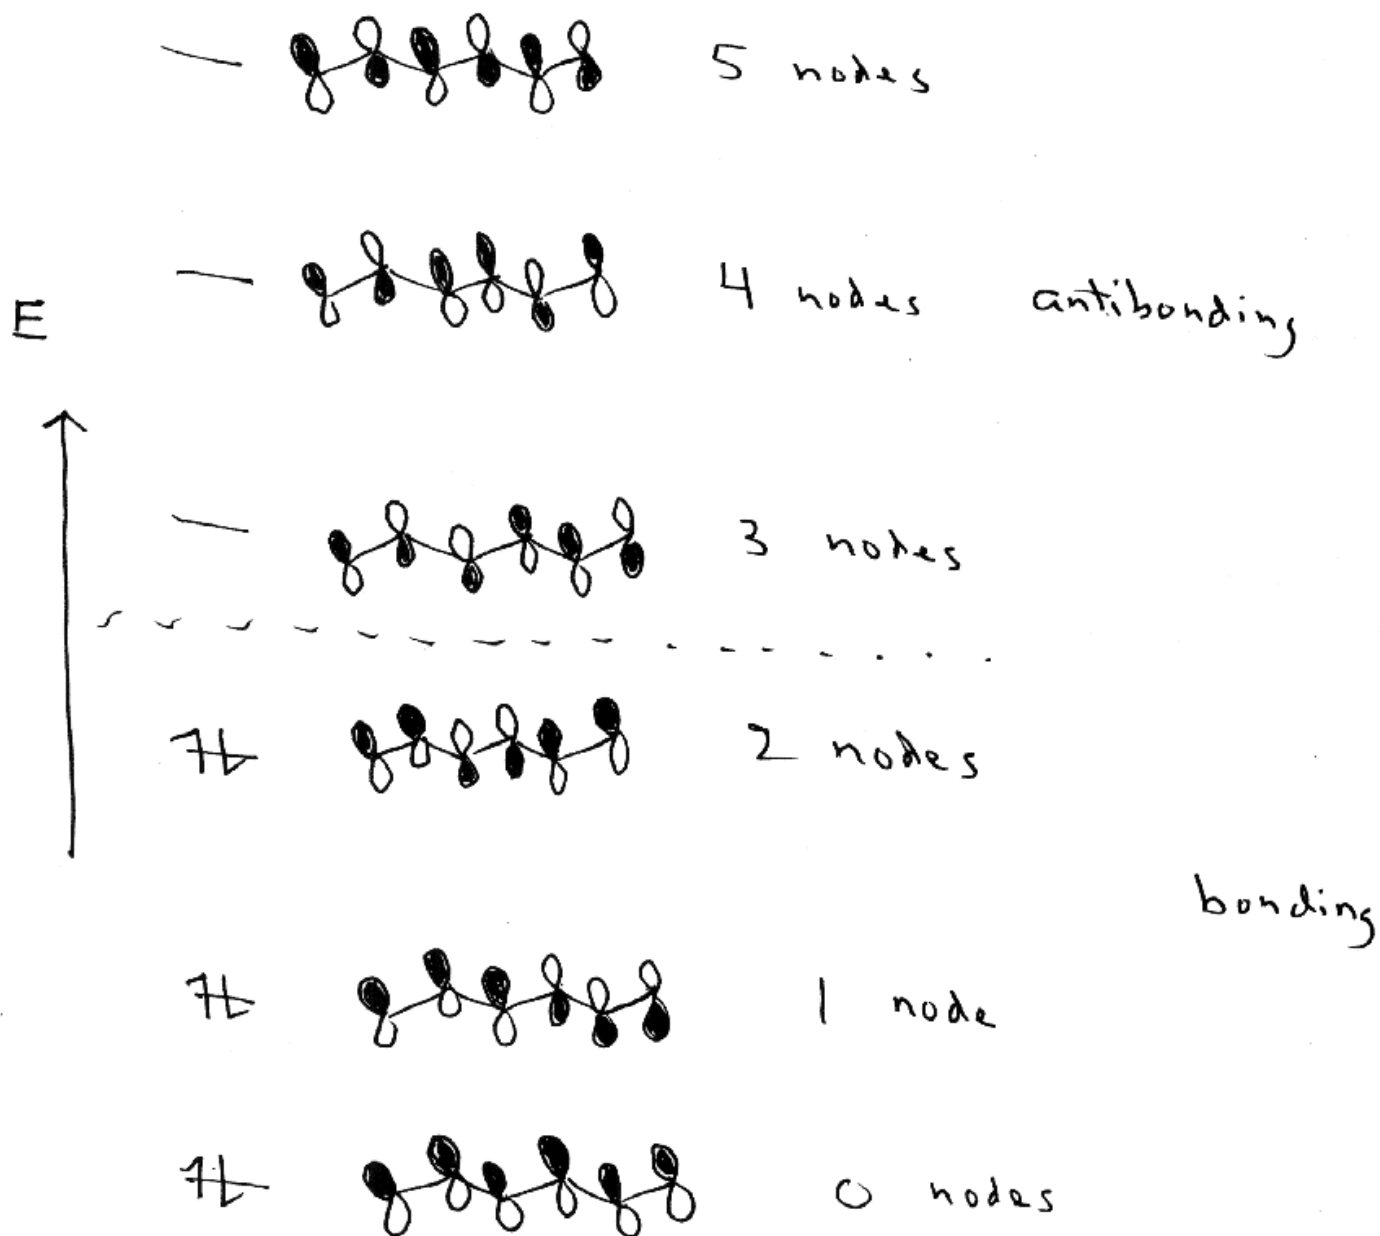 5 nodes
4 nodes antibonding
E
3 nodes
2 nodes
bonding
1 node
0 nodes